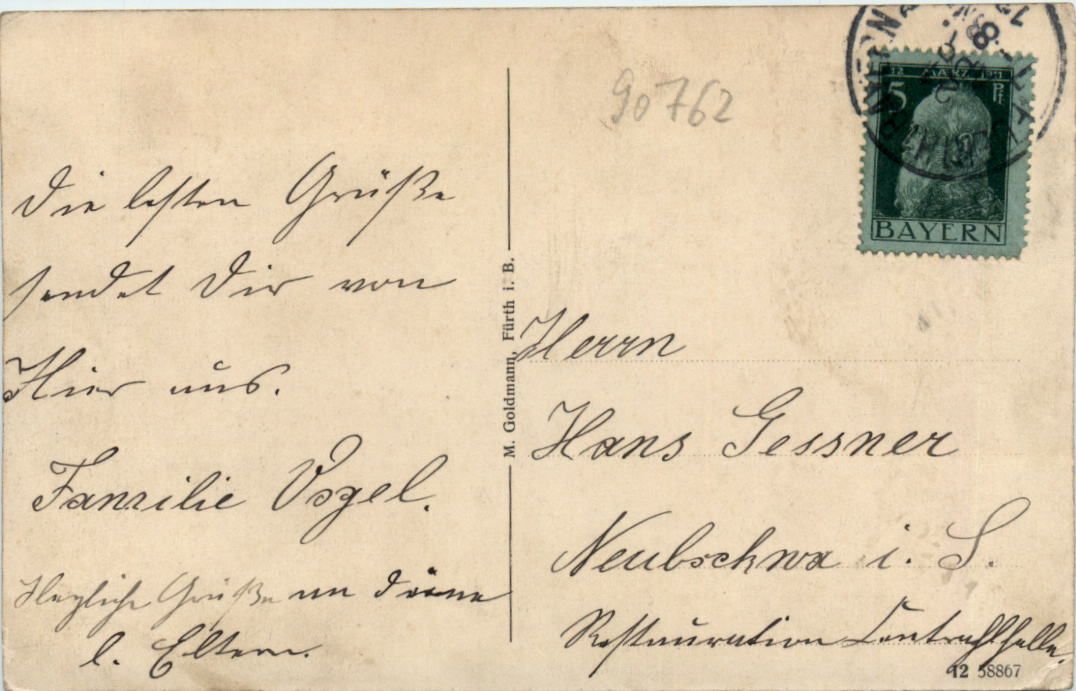 90762
12 MÄRZ 1911
5 Pf
BAYERN
Die besten Grüße
sendet Dir von
Hier aus.
Familie Vogel.
Herzliche Grüße an Deine
l. Eltern.
M. Goldmann, Fürth i. B.
Herrn
Hans Gessner
i. S.
Restauration Centralhalle.
12 58867